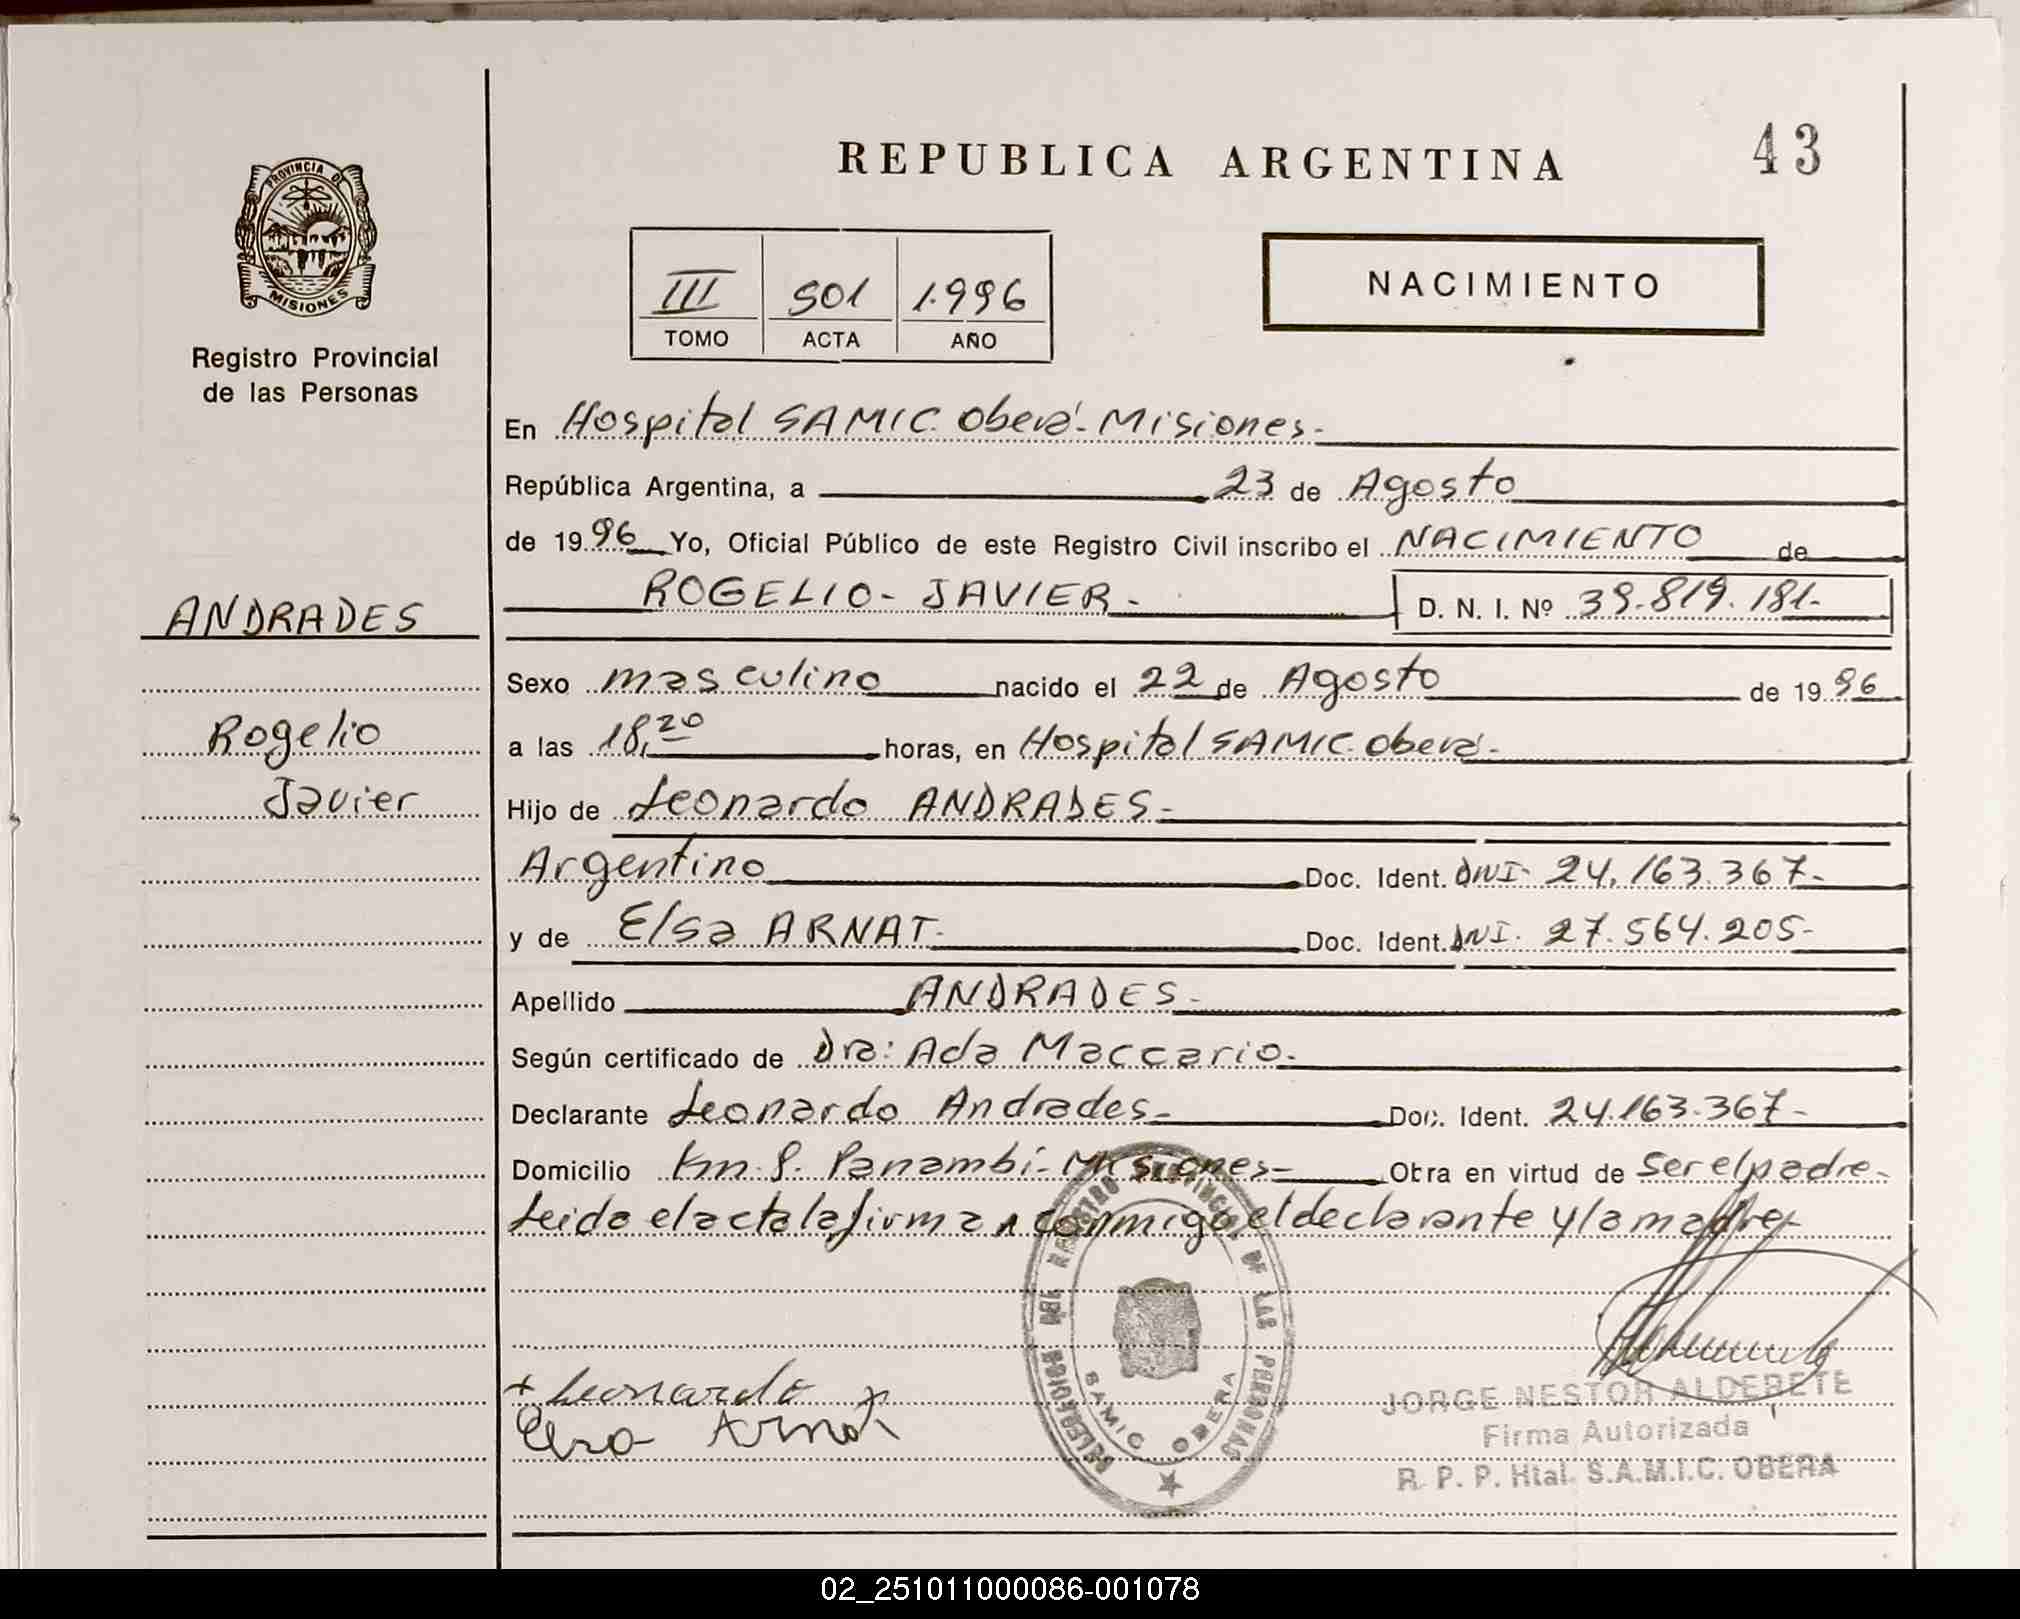 REPUBLICA ARGENTINA
43
PROVINCIA DE
MISIONES
Registro Provincial
de las Personas
III 501 1.996
TOMO ACTA AÑO
NACIMIENTO
En Hospital SAMIC. Oberá - Misiones -
República Argentina, a 23 de Agosto
de 19 96 Yo, Oficial Público de este Registro Civil inscribo el NACIMIENTO de
ROGELIO - JAVIER -
D. N. I. Nº 39.819.181-
ANDRADES
Rogelio
Javier
Sexo masculino nacido el 22 de Agosto de 19 96
a las 18,20 horas, en Hospital SAMIC. Oberá -
Hijo de Leonardo ANDRADES -
Argentino Doc. Ident. DNI - 24.163.367-
y de Elsa ARNAT. Doc. Ident. DNI. 27.564.205-
Apellido ANDRADES -
Según certificado de Dra: Ada Maccario.
Declarante Leonardo Andrades - Doc. Ident. 24.163.367-
Domicilio Km. 8. Panambí - Misiones - Obra en virtud de ser el padre -
Leida el acta la firman conmigo el declarante y la madre -
DELEGACION DEL REGISTRO PROVINCIAL DE LAS PERSONAS
SAMIC OBERA
+ Leonardo
Elsa Arnat
JORGE NESTOR ALDERETE
Firma Autorizada
R. P. P. Htal. S.A.M.I.C. OBERA
02_251011000086-001078